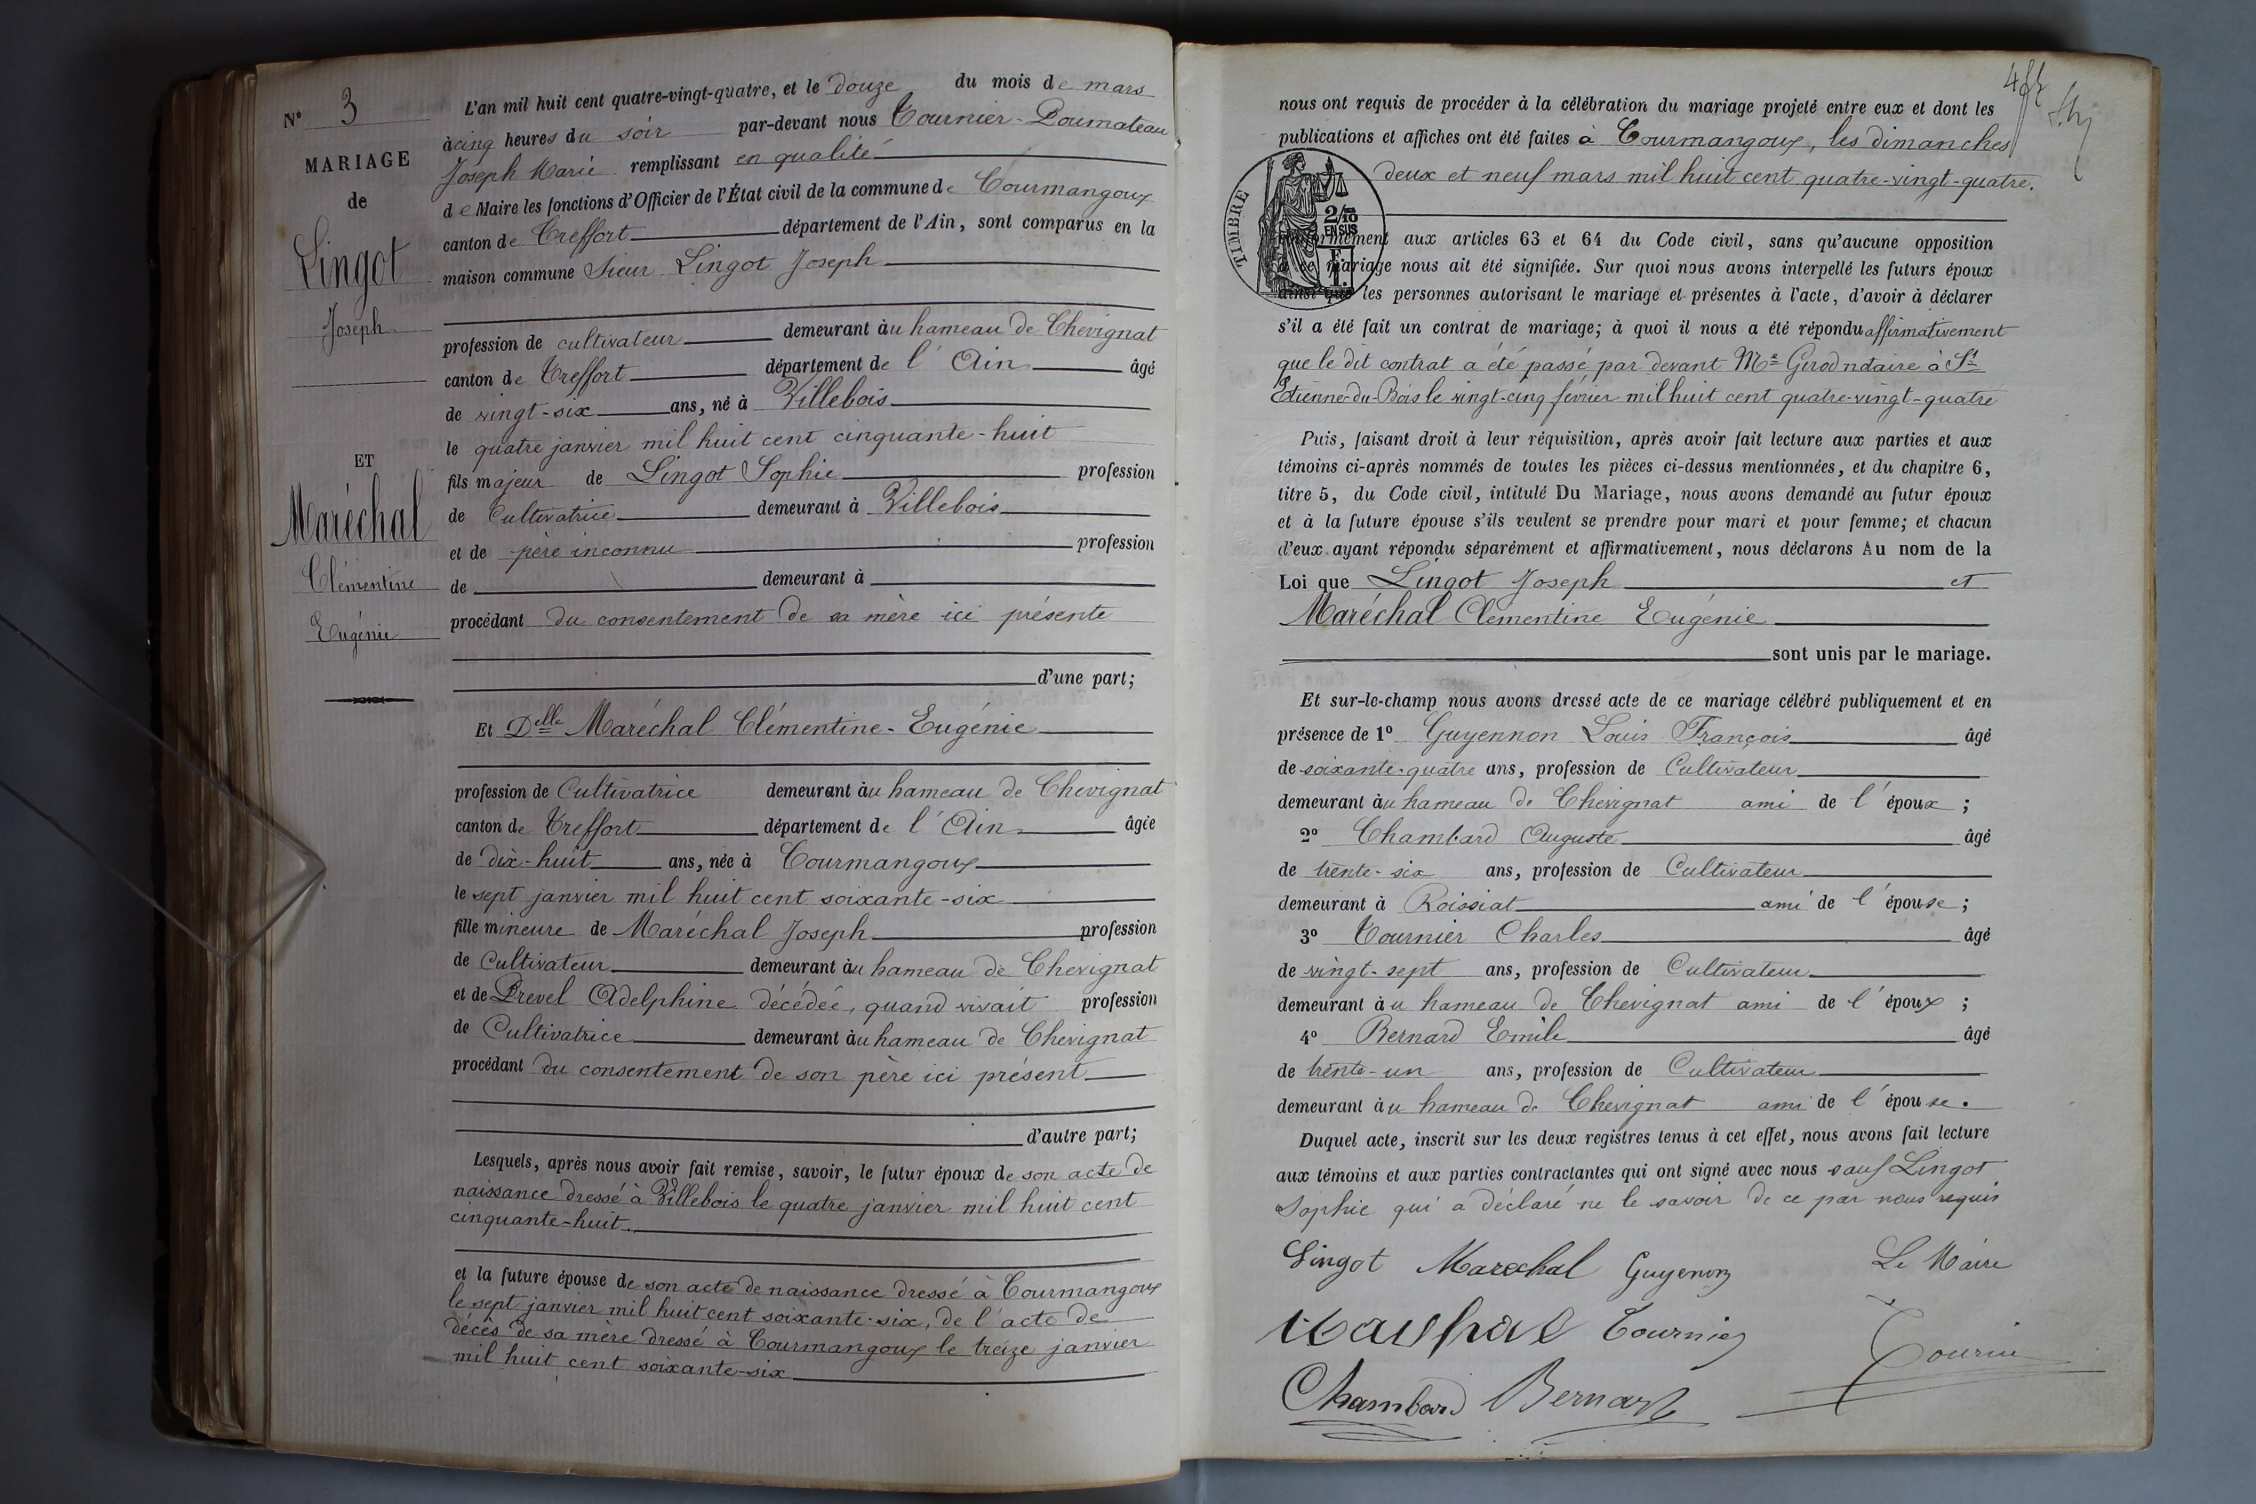 N° 3
MARIAGE
de
Lingot
Joseph
ET
Maréchal
Clémentine
Eugénie
L'an mil huit cent quatre-vingt-quatre, et le douze du mois de mars
à cinq heures du soir par-devant nous Tournier-Doumateau
Joseph Marie remplissant en qualité
de Maire les fonctions d'Officier de l'État civil de la commune de Courmangoux
canton de Treffort département de l'Ain, sont comparus en la
maison commune Sieur Lingot Joseph
profession de cultivateur demeurant àu hameau de Chevignat
canton de Treffort département de l'Ain âgé
de vingt-six ans, né à Villebois
le quatre janvier mil huit cent cinquante-huit
fils majeur de Lingot Sophie profession
de Cultivatrice demeurant à Villebois
et de père inconnu profession
de demeurant à
procédant du consentement de sa mère ici présente
d'une part;
Et Delle Maréchal Clémentine-Eugénie
profession de Cultivatrice demeurant àu hameau de Chevignat
canton de Treffort département de l'Ain âgée
de dix-huit ans, née à Courmangoux
le sept janvier mil huit cent soixante-six
fille mineure de Maréchal Joseph profession
de Cultivateur demeurant àu hameau de Chevignat
et de Prevel Adelphine décédée, quand vivait profession
de Cultivatrice demeurant àu hameau de Chevignat
procédant du consentement de son père ici présent
d'autre part;
Lesquels, après nous avoir fait remise, savoir, le futur époux de son acte de
naissance dressé à Villebois le quatre janvier mil huit cent
cinquante-huit.
et la future épouse de son acte de naissance dressé à Courmangoux
le sept janvier mil huit cent soixante-six, de l'acte de
décès de sa mère dressé à Courmangoux le treize janvier
mil huit cent soixante-six
nous ont requis de procéder à la célébration du mariage projeté entre eux et dont les
publications et affiches ont été faites à Courmangoux, les dimanches
deux et neuf mars mil huit cent quatre-vingt-quatre.
TIMBRE
2/10
EN SUS
conformément aux articles 63 et 64 du Code civil, sans qu'aucune opposition
à ce mariage nous ait été signifiée. Sur quoi nous avons interpellé les futurs époux
ainsi que les personnes autorisant le mariage et présentes à l'acte, d'avoir à déclarer
s'il a été fait un contrat de mariage; à quoi il nous a été répondu affirmativement
que le dit contrat a été passé par devant Me Girod notaire à St
Etienne-du-Bois le vingt-cinq février mil huit cent quatre-vingt-quatre
Puis, faisant droit à leur réquisition, après avoir fait lecture aux parties et aux
témoins ci-après nommés de toutes les pièces ci-dessus mentionnées, et du chapitre 6,
titre 5, du Code civil, intitulé Du Mariage, nous avons demandé au futur époux
et à la future épouse s'ils veulent se prendre pour mari et pour femme; et chacun
d'eux ayant répondu séparément et affirmativement, nous déclarons Au nom de la
Loi que Lingot Joseph et
Maréchal Clementine Eugénie
sont unis par le mariage.
Et sur-le-champ nous avons dressé acte de ce mariage célébré publiquement et en
présence de 1° Guyennon Louis François âgé
de soixante-quatre ans, profession de Cultivateur
demeurant àu hameau de Chevignat ami de l'époux;
2° Chambard Auguste âgé
de trente-six ans, profession de Cultivateur
demeurant à Roissiat ami de l'épouse;
3° Tournier Charles âgé
de vingt-sept ans, profession de Cultivateur
demeurant àu hameau de Chevignat ami de l'époux;
4° Bernard Emile âgé
de trente-un ans, profession de Cultivateur
demeurant àu hameau de Chevignat ami de l'épouse.
Duquel acte, inscrit sur les deux registres tenus à cet effet, nous avons fait lecture
aux témoins et aux parties contractantes qui ont signé avec nous sauf Lingot
Sophie qui a déclaré ne le savoir de ce par nous requis
Lingot Marechal Guyenon Le Maire
Tournier
Chambard Bernard